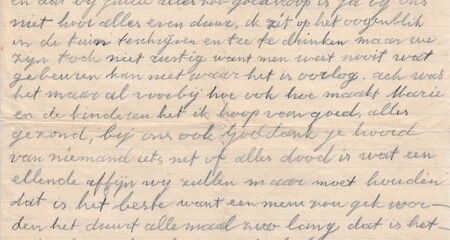 en dat bij jullie alles zoo goedkoop is ja bij ons
niet hoor alles even duur, ik zit op het oogenblik
in de tuin te schrijven en tee te drinken maar we
zyn toch niet rustig want men weet nooit wat
gebeuren kan niet waar het is oorlog, ach was
het maar al voorbij hoe ook hoe maakt Marie
en de kinderen het ik hoop van goed, alles
gezond, bij ons ook Goddank je hoord
van niemand iets net of alles dood is wat een
ellende affijn wij zullen maar moet houden
dat is het beste want een mens zou gek wor-
den het duurt allemaal zoo lang dat is het-